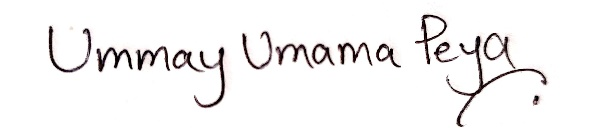 Ummay Umama Peya